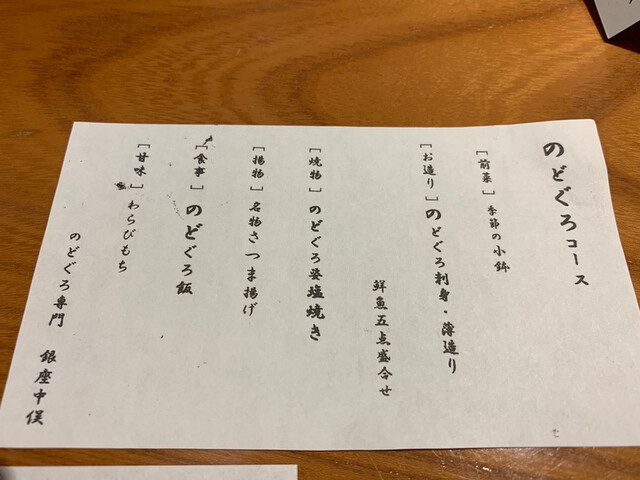 のどぐろコース
[前菜] 季節の小鉢
[お造り] のどぐろ刺身・薄造り
鮮魚五点盛合せ
[焼物] のどぐろ姿塩焼き
[揚物] 名物さつま揚げ
[食事] のどぐろ飯
[甘味] わらびもち
のどぐろ専門 銀座中俣